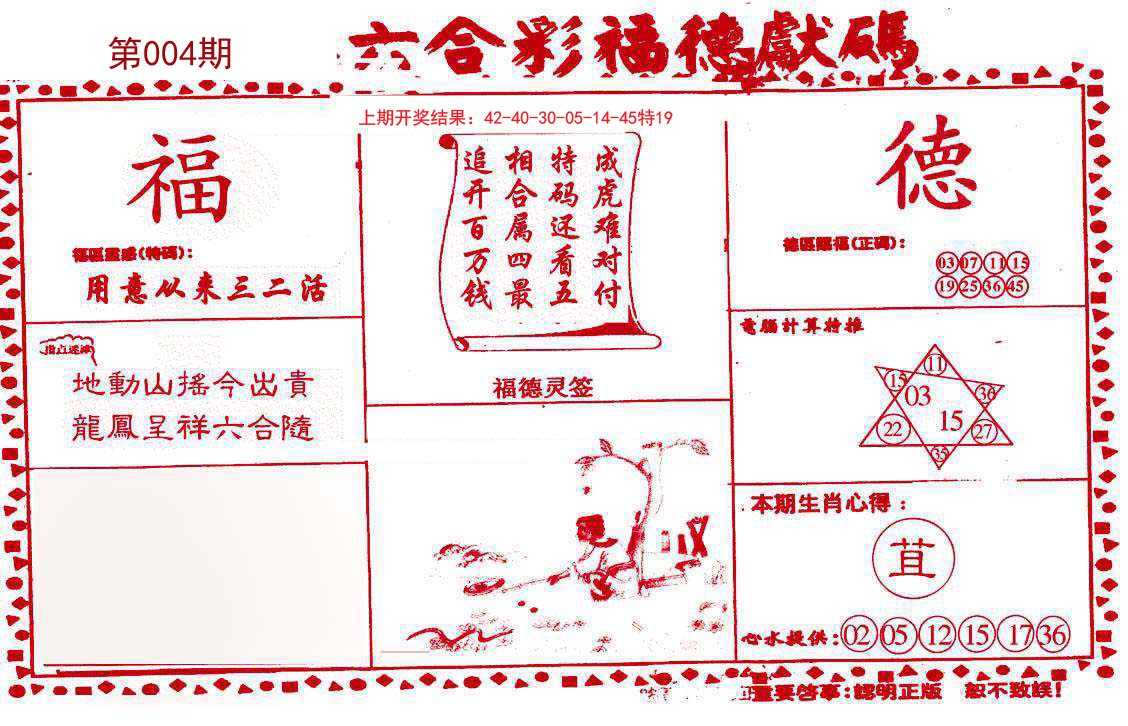 第004期
六合彩福德獻碼
上期开奖结果：42-40-30-05-14-45特19
福
福區靈感(特碼)：
用意从来三二活
指点迷津
地動山搖今出貴
龍鳳呈祥六合隨
成虎难对付
特码还看五
相合属四最
追开百万钱
福德灵签
德
德區賜福(正碼)：
03 07 11 15
19 25 36 45
電腦計算特推
11
15
36
03
15
22
27
35
本期生肖心得：
苴
心水提供：02 05 12 15 17 36
重要啓事：認明正版 恕不致誤！